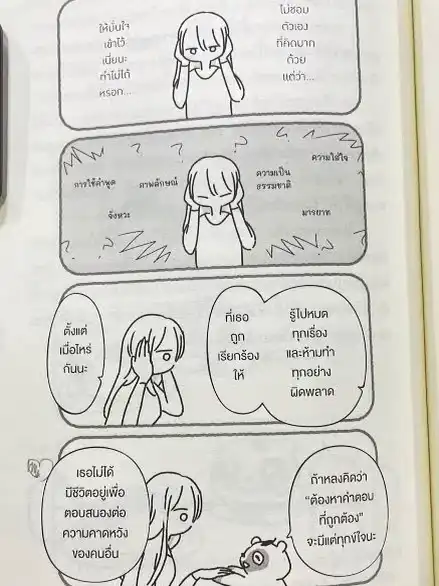 ไม่ชอบ
ตัวเอง
ที่คิดมาก
ด้วย
แต่ว่า...
ให้มั่นใจ
เข้าไว้
เนี่ยนะ
ทำไม่ได้
หรอก...
ความใส่ใจ
การใช้คำพูด
ภาพลักษณ์
ความเป็น
ธรรมชาติ
จังหวะ
มารยาท
รู้ไปหมด
ทุกเรื่อง
และห้ามทำ
ทุกอย่าง
ผิดพลาด
ที่เธอ
ถูก
เรียกร้อง
ให้
ตั้งแต่
เมื่อไหร่
กันนะ
ถ้าหลงคิดว่า
"ต้องหาคำตอบ
ที่ถูกต้อง"
จะมีแต่ทุกข์ใจนะ
เธอไม่ได้
มีชีวิตอยู่เพื่อ
ตอบสนองต่อ
ความคาดหวัง
ของคนอื่น